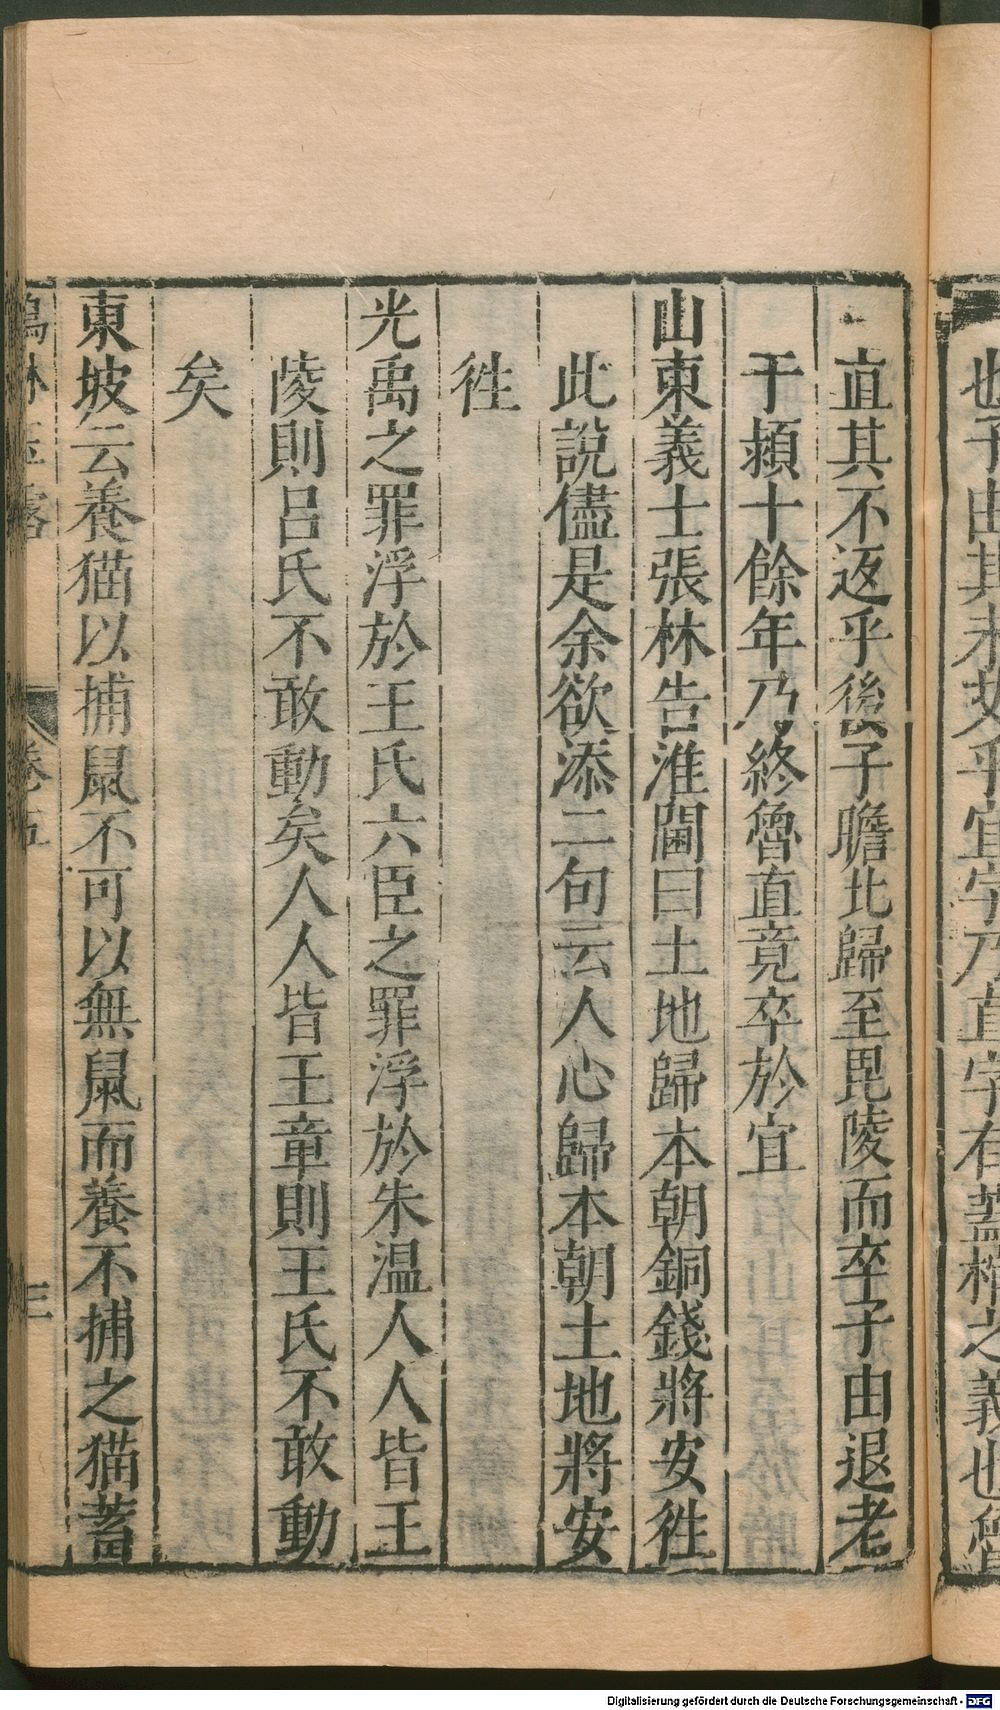 也子由其未艾乎宜字乃直字有蓋棺之義也
直其不返乎後子瞻北歸至毘陵而卒子由退老
于潁十餘年乃終魯直竟卒於宜
山東義士張林告淮閫曰土地歸本朝銅錢將安徃
此說儘是余欲添二句云人心歸本朝土地將安
徃
光禹之罪浮於王氏六臣之罪浮於朱温人人皆王
陵則呂氏不敢動矣人人皆王章則王氏不敢動
矣
東坡云養猫以捕鼠不可以無鼠而養不捕之猫蓄
林玉露 卷五 三
Digitalisierung gefördert durch die Deutsche Forschungsgemeinschaft - DFG